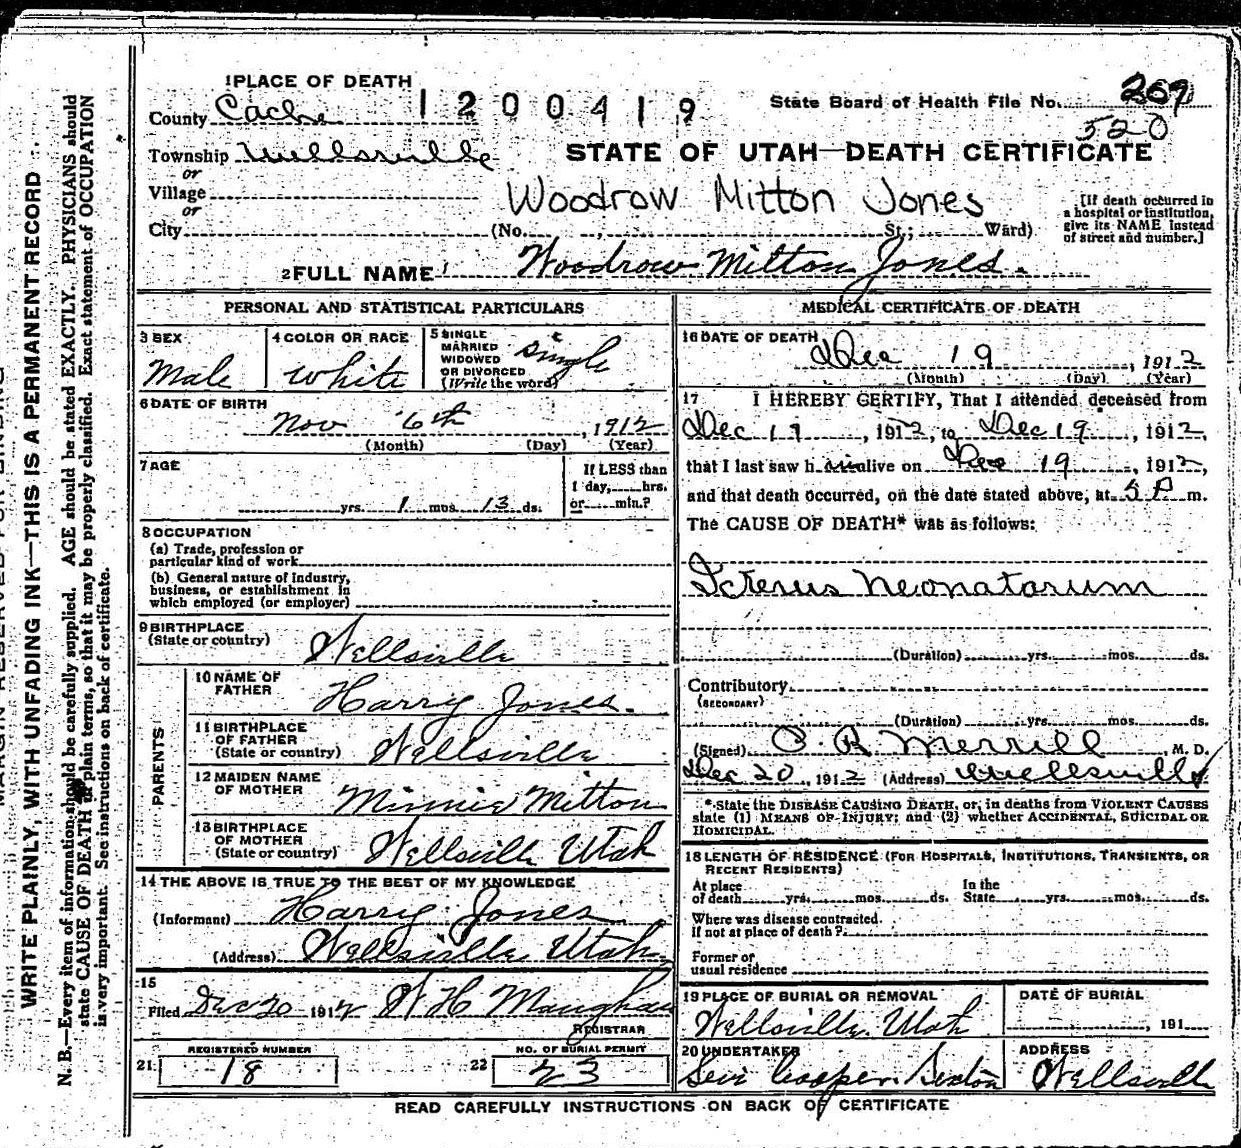 1 PLACE OF DEATH
County Cache 1200419 State Board of Health File No. 269
520
Township Wellsville STATE OF UTAH—DEATH CERTIFICATE
or
Village Woodrow Mitton Jones
or
City (No. , St.; Ward)
[If death occurred in
a hospital or institution,
give its NAME instead
of street and number.]
2 FULL NAME Woodrow Mitton Jones.
PERSONAL AND STATISTICAL PARTICULARS
3 SEX
Male
4 COLOR OR RACE
White
5 SINGLE
MARRIED
WIDOWED
OR DIVORCED
(Write the word)
Single
6 DATE OF BIRTH
Nov 6th, 1912
(Month) (Day) (Year)
7 AGE
yrs. 1 mos. 13 ds.
If LESS than
1 day, hrs.
or min.?
8 OCCUPATION
(a) Trade, profession or
particular kind of work
(b) General nature of industry,
business, or establishment in
which employed (or employer)
9 BIRTHPLACE
(State or country) Wellsville
PARENTS
10 NAME OF
FATHER Harry Jones.
11 BIRTHPLACE
OF FATHER
(State or country) Wellsville
12 MAIDEN NAME
OF MOTHER Minnie Mitton
13 BIRTHPLACE
OF MOTHER
(State or country) Wellsville Utah
14 THE ABOVE IS TRUE TO THE BEST OF MY KNOWLEDGE
(Informant) Harry Jones
(Address) Wellsville Utah
15
Filed Dec 20 1912 W H Maughan
REGISTRAR
REGISTERED NUMBER
21 18
NO. OF BURIAL PERMIT
22 23
MEDICAL CERTIFICATE OF DEATH
16 DATE OF DEATH Dec 19, 1912
(Month) (Day) (Year)
17 I HEREBY CERTIFY, That I attended deceased from
Dec 19, 1912, to Dec 19, 1912,
that I last saw h im alive on Dec 19, 1912,
and that death occurred, on the date stated above, at 5 P m.
The CAUSE OF DEATH* was as follows:
Icterus Neonatorum
(Duration) yrs. mos. ds.
Contributory
(SECONDARY)
(Duration) yrs. mos. ds.
(Signed) O. R. Merrill, M. D.
Dec 20, 1912 (Address) Wellsville
*State the DISEASE CAUSING DEATH, or, in deaths from VIOLENT CAUSES
state (1) MEANS OF INJURY; and (2) whether ACCIDENTAL, SUICIDAL OR
HOMICIDAL.
18 LENGTH OF RESIDENCE (FOR HOSPITALS, INSTITUTIONS, TRANSIENTS, OR
RECENT RESIDENTS)
At place
of death yrs. mos. ds.
In the
State yrs. mos. ds.
Where was disease contracted.
if not at place of death?
Former or
usual residence
19 PLACE OF BURIAL OR REMOVAL
Wellsville Utah
DATE OF BURIAL
, 191
20 UNDERTAKER
Levi Cooper. Sexton
ADDRESS
Wellsville
READ CAREFULLY INSTRUCTIONS ON BACK OF CERTIFICATE
WRITE PLAINLY, WITH UNFADING INK—THIS IS A PERMANENT RECORD.
N. B.—Every item of information should be carefully supplied. AGE should be stated EXACTLY. PHYSICIANS should
state CAUSE OF DEATH in plain terms, so that it may be properly classified. Exact statement of OCCUPATION
is very important. See instructions on back of certificate.